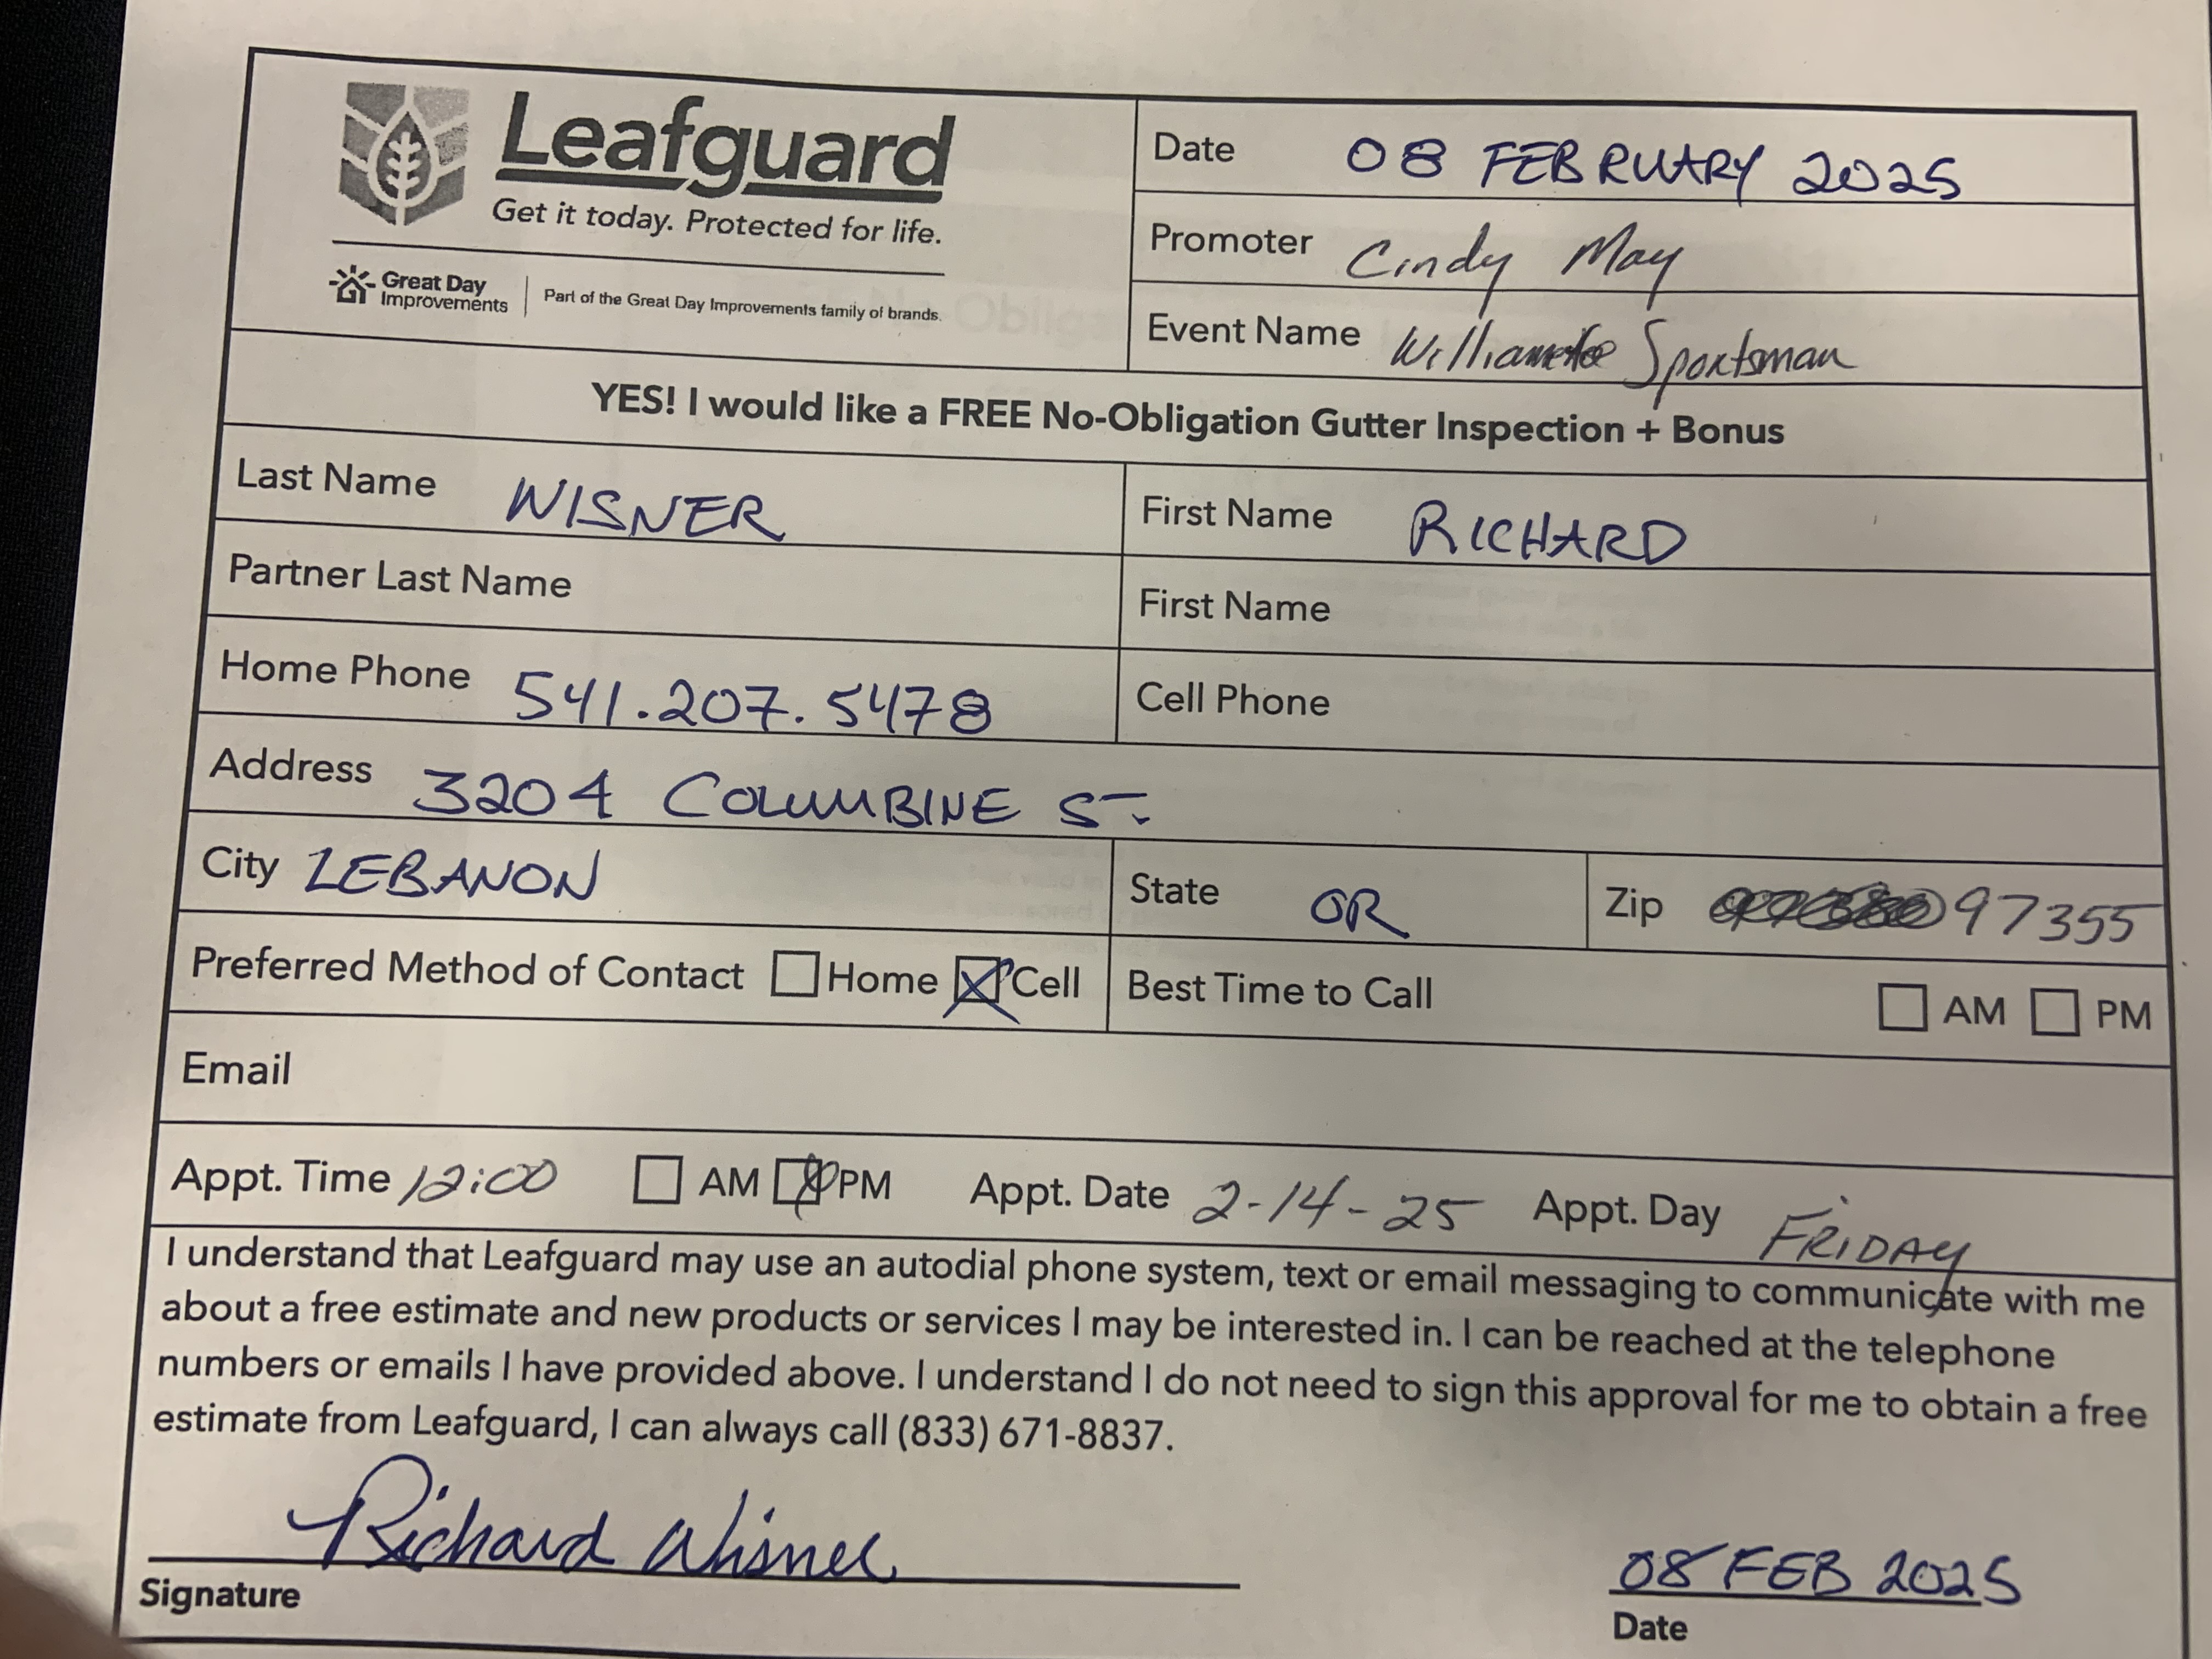 Leafguard
Get it today. Protected for life.
Great Day Improvements | Part of the Great Day Improvements family of brands.
Date 08 FEBRUARY 2025
Promoter Cindy May
Event Name Williamette Sportsman
YES! I would like a FREE No-Obligation Gutter Inspection + Bonus
Last Name WISNER First Name RICHARD
Partner Last Name First Name
Home Phone 541.207.5478 Cell Phone
Address 3204 COLUMBINE ST.
City LEBANON State OR Zip 97355
Preferred Method of Contact Home Cell Best Time to Call AM PM
Email
Appt. Time 12:00 AM PM Appt. Date 2-14-25 Appt. Day FRIDAY
I understand that Leafguard may use an autodial phone system, text or email messaging to communicate with me
about a free estimate and new products or services I may be interested in. I can be reached at the telephone
numbers or emails I have provided above. I understand I do not need to sign this approval for me to obtain a free
estimate from Leafguard, I can always call (833) 671-8837.
Richard Wisner 08 FEB 2025
Signature Date